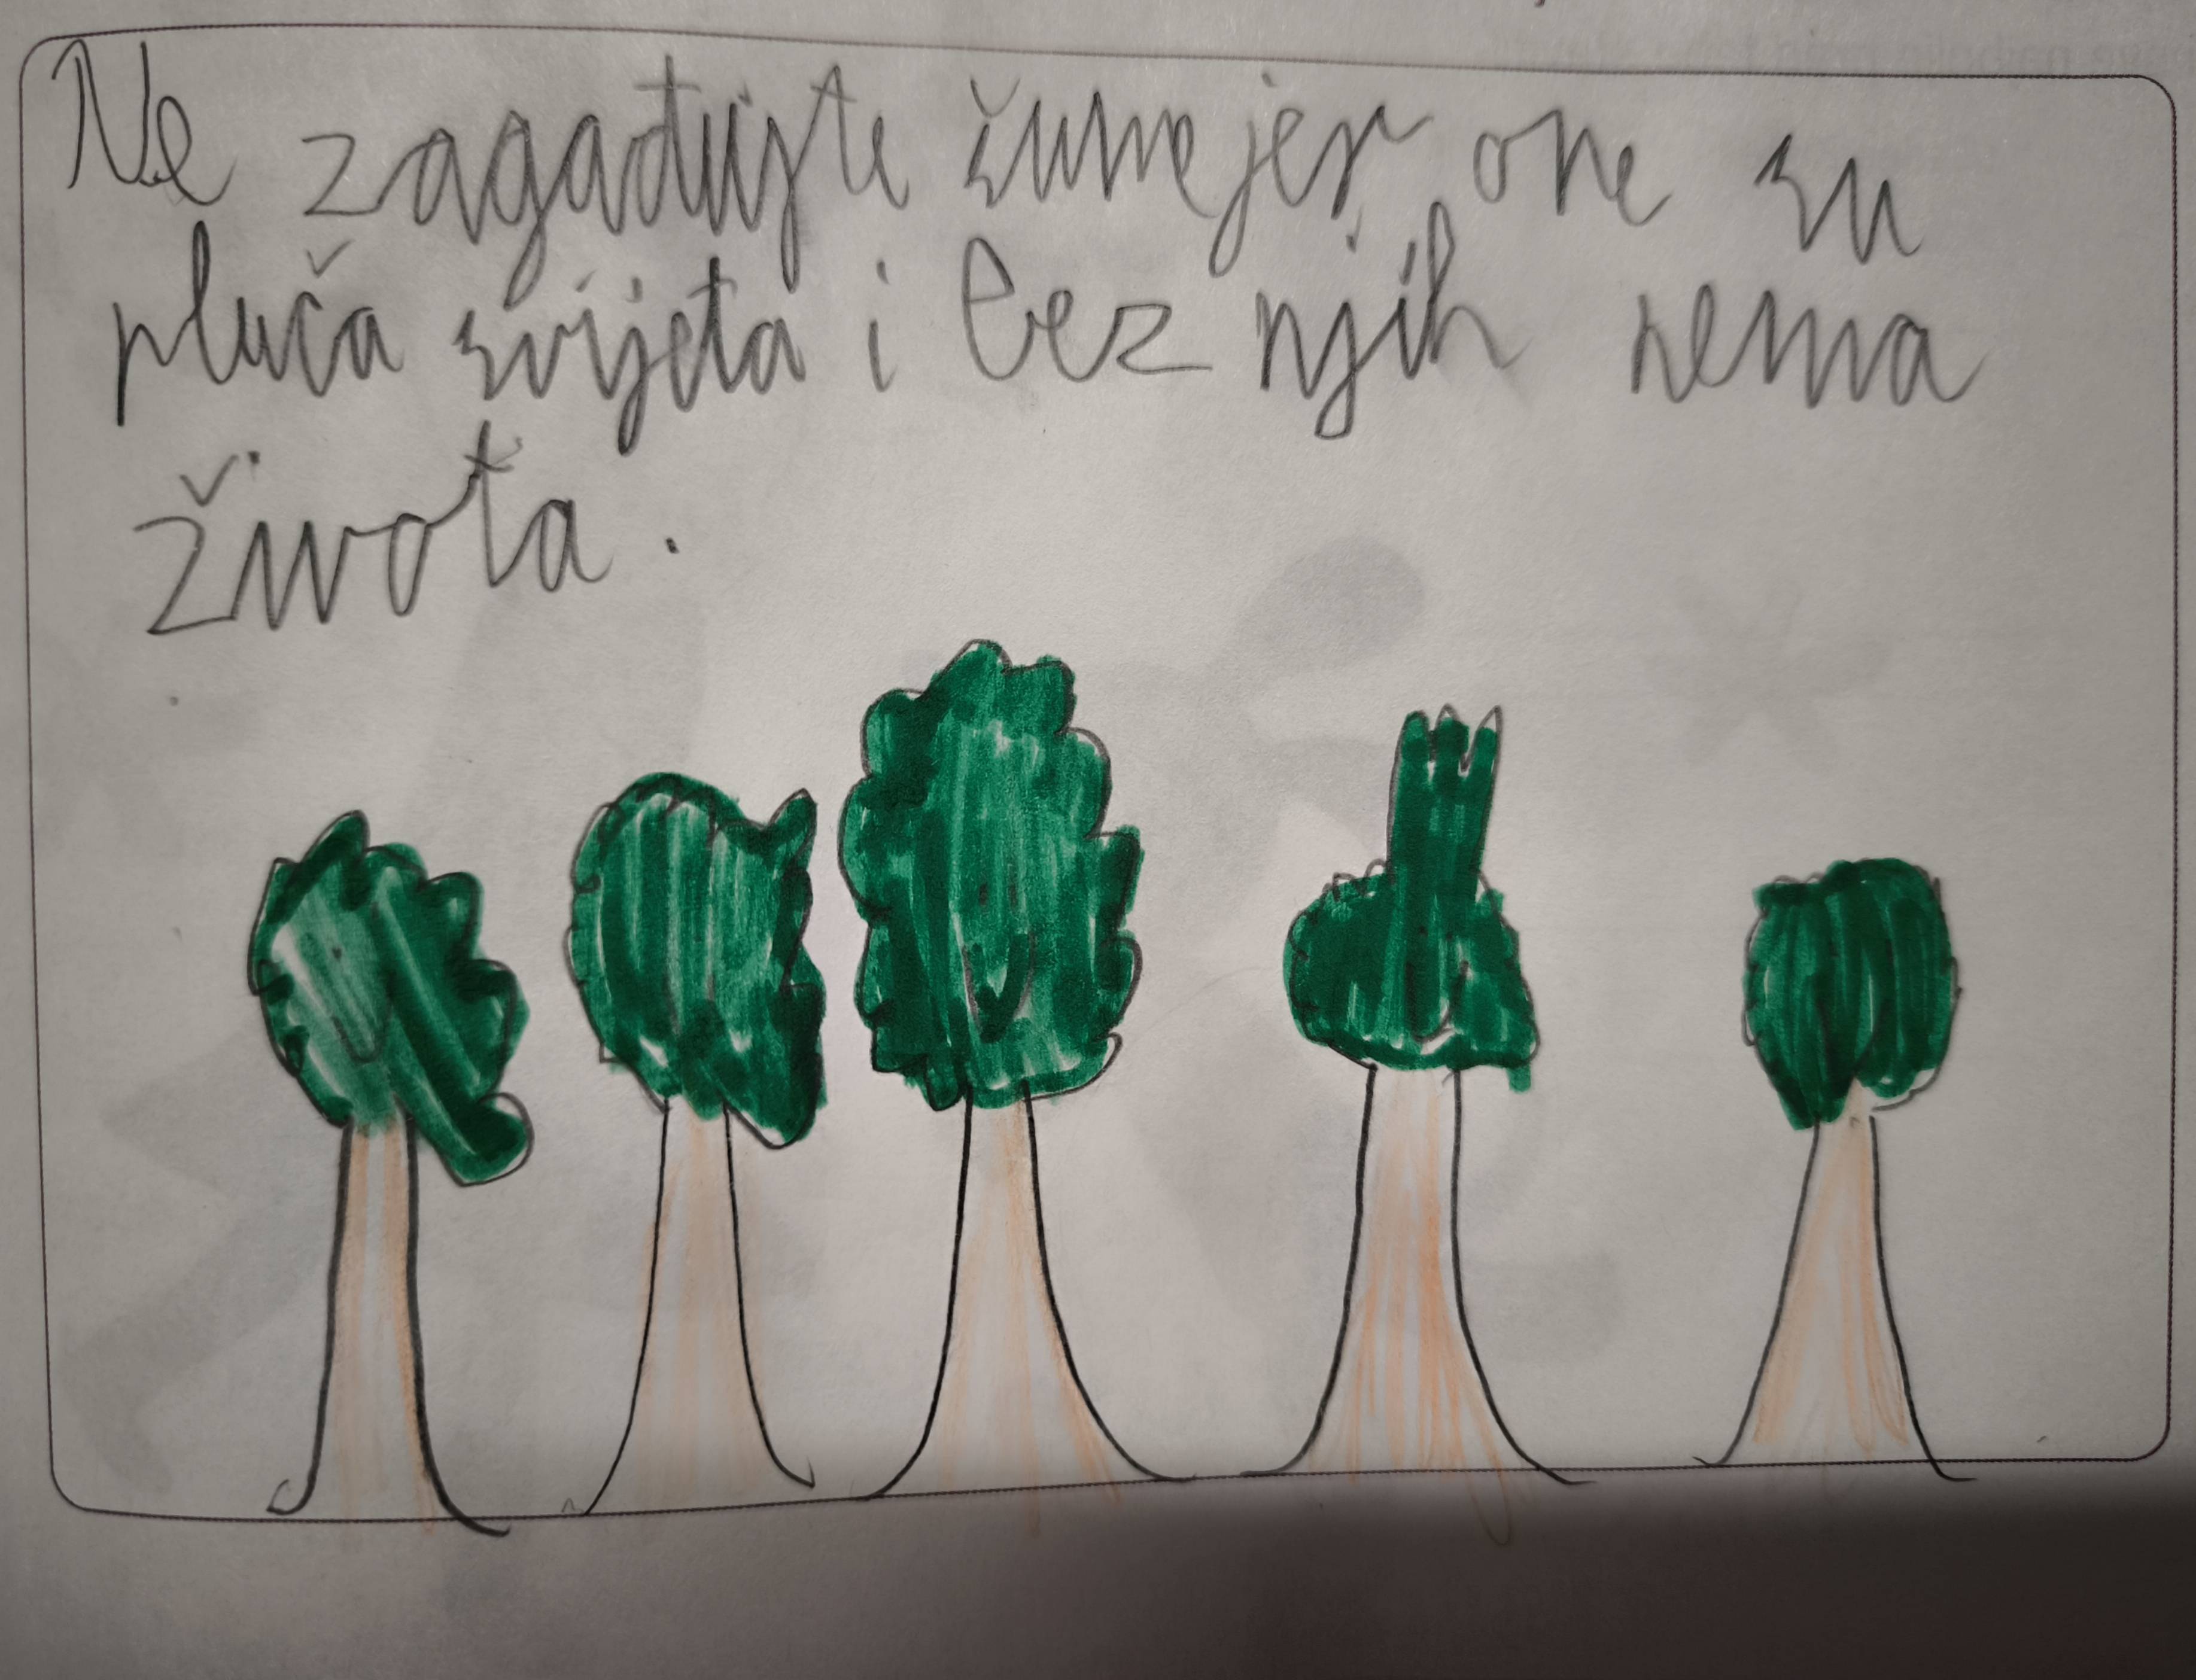 Ne zagađujte šume jer one su
pluča svijeta i bez njih nema
života.